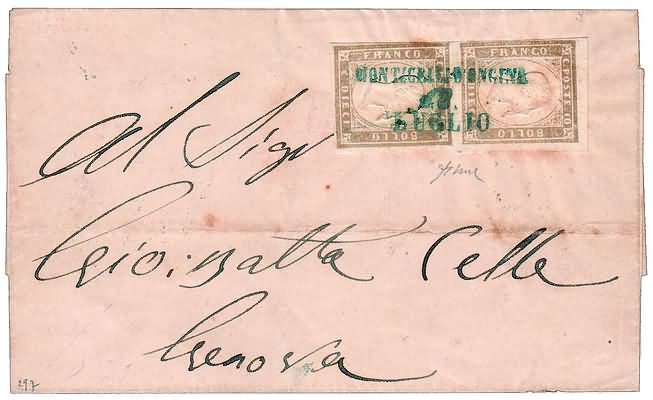 FRANCO FRANCO
MONTICELLI-D'ONGINA
10
LUGLIO
BOLLO BOLLO
Al Sigr
Gio: Batta Celle
Genova
297